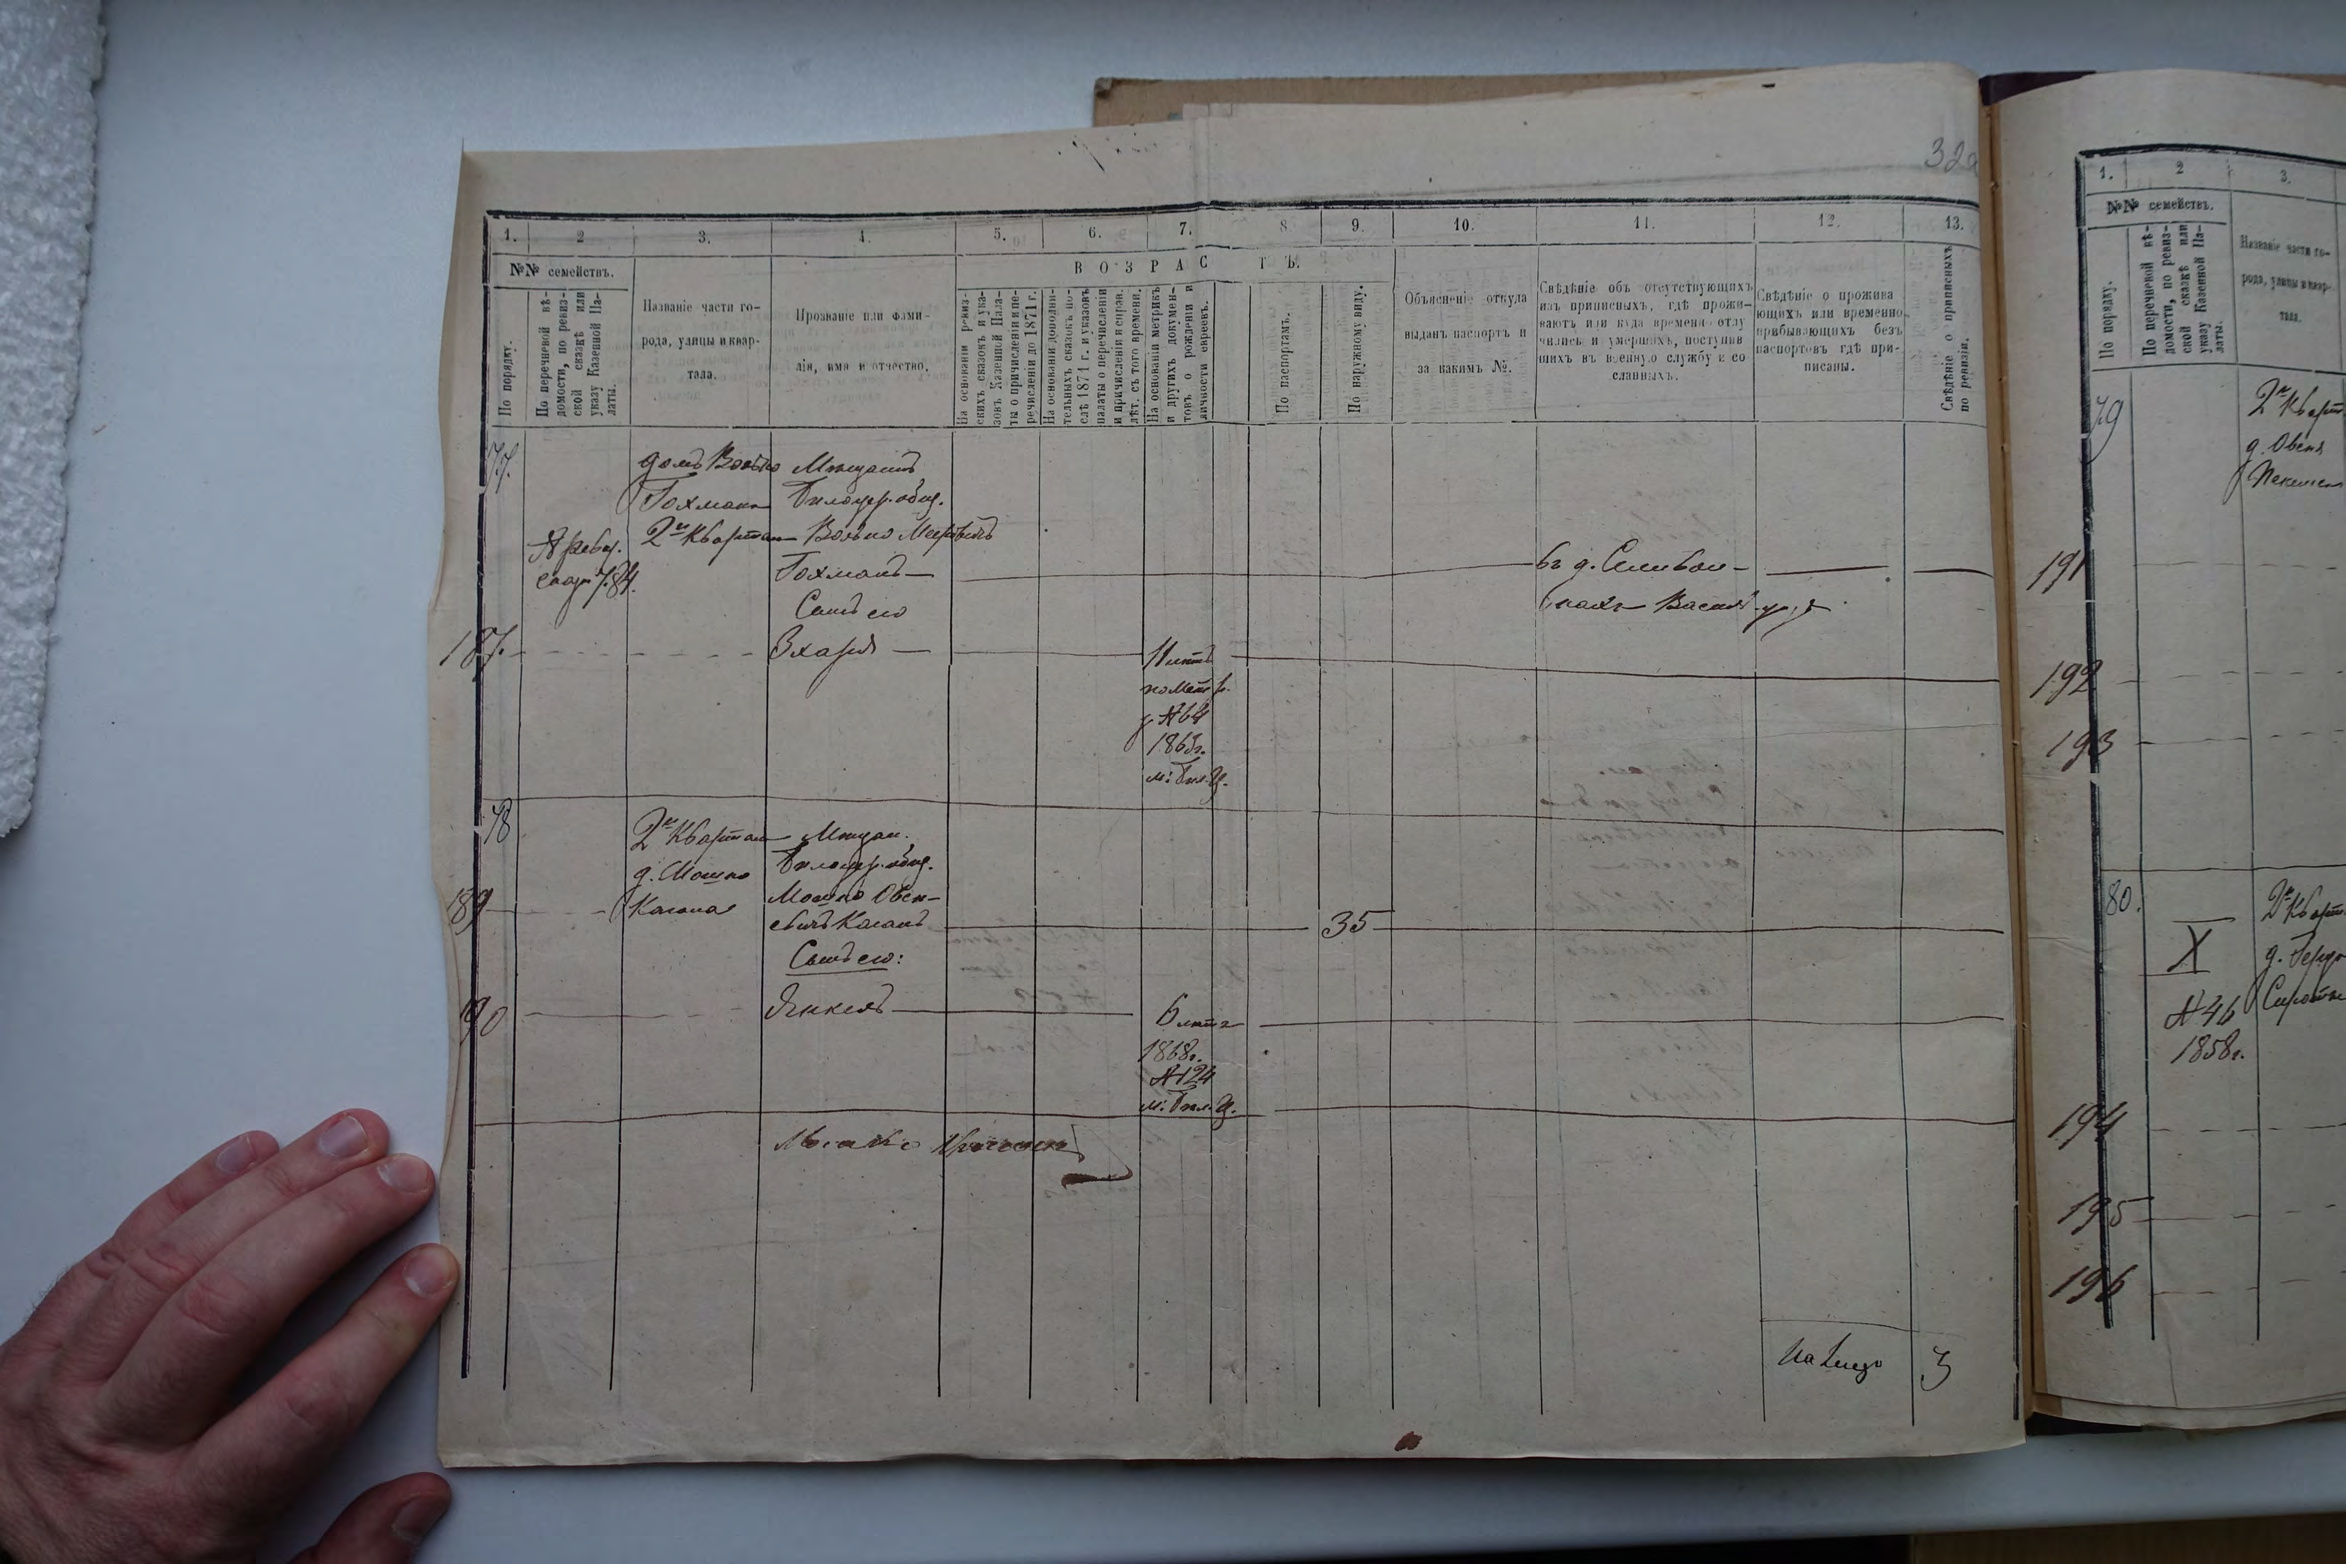 32а
1. 2 3. 4. 5. 6. 7. 8 9. 10. 11. 12. 13.
№№ семействъ.
По порядку.
По перечневой вѣ-
домости, по ревиз-
ской сказкѣ или
указу Казенной Па-
латы.
Названіе части го-
рода, улицы и квар-
тала.
Прозваніе или фами-
лія, имя и отчество.
ВОЗРАСТЪ.
На основаніи ревиз-
скихъ сказокъ и ука-
зовъ Казенной Пала-
ты о причисленіи и пе-
речисленіи до 1871 г.
На основаніи дополни-
тельныхъ сказокъ по-
слѣ 1871 г. и указовъ
палаты о перечисленіи
и причисленіи и справ.
лѣт. съ того времени.
На основаніи метрикъ
и другихъ докумен-
товъ о рожденіи и
личности евреевъ.
По паспортамъ.
По наружному виду.
Объясненіе откуда
выданъ паспортъ и
за какимъ №.
Свѣдѣніе объ отсутствующихъ
изъ приписныхъ, гдѣ прожи-
ваютъ или куда времени отлу
чились и умершихъ, поступив
шихъ въ военную службу и со
сланныхъ.
Свѣдѣніе о прожива
ющихъ или временно
прибывающихъ безъ
паспортовъ гдѣ при-
писаны.
Свѣдѣніе о приписныхъ
по ревизіи.
77.
домъ Волько
Гохмана
2й Квартал
Мѣщанинъ
Бѣлоцер. общ.
Волько Мееровичъ
Гохманъ
№ ревиз.
784.
Сынъ его
въ д.
Васильк. уѣзда
187.
Зхарія
11 лѣтъ
по метр.
№ 64
1863г.
м: Бѣл. Ц.
78
2й Квартал
д. Мошко
Когана
Мѣщан.
Бѣлоцер. общ.
Мошко Овсѣ-
евичъ Коганъ
189
35
Сынъ его:
190
Янкель
6 лѣтъ
1868г.
№ 124
м: Бѣл. Ц.
На лицо 3
1. 2 3.
№№ семействъ.
По порядку.
По перечневой вѣ-
домости, по ревиз-
ской сказкѣ или
указу Казенной Па-
латы.
Названіе части го-
рода, улицы и квар-
тала.
79
2й Кварт
д. Овсѣя
191
192
193
80.
2й Кварт.
X
№ 46
1858г.
194
195
196